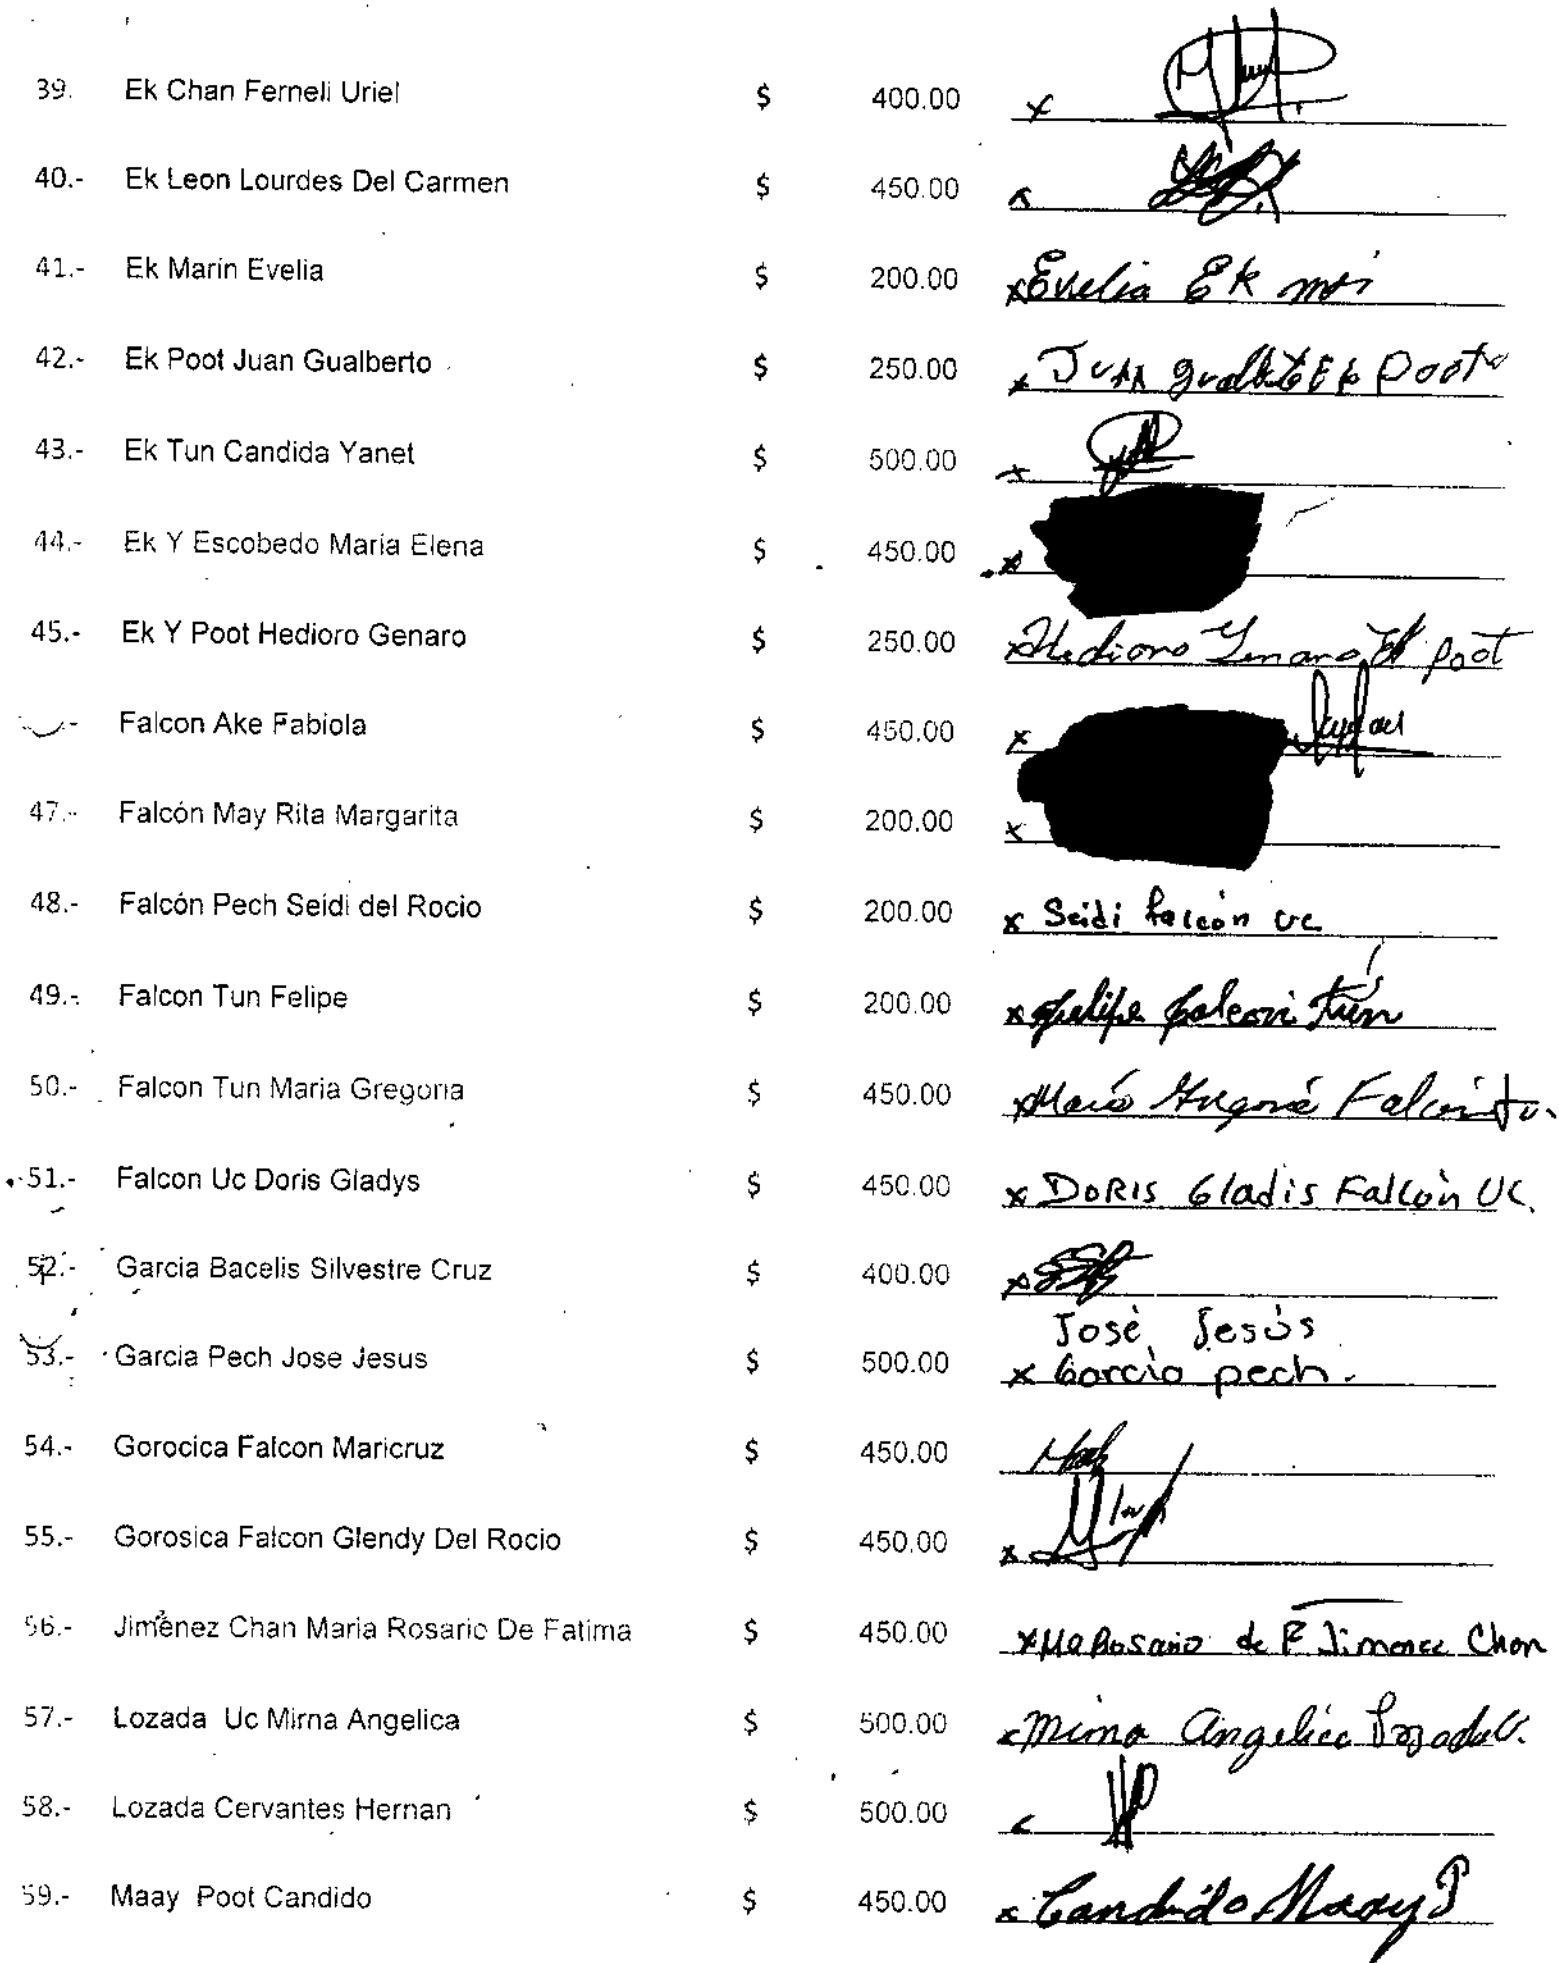 39. Ek Chan Ferneli Uriel $ 400.00 x
40.- Ek Leon Lourdes Del Carmen $ 450.00 x
41.- Ek Marín Evelia $ 200.00 x Evelia Ek
42.- Ek Poot Juan Gualberto $ 250.00 x Juan Ek Poot
43.- Ek Tun Candida Yanet $ 500.00 x
44.- Ek Y Escobedo María Elena $ 450.00 x
45.- Ek Y Poot Hedioro Genaro $ 250.00 x Hedioro Genaro Ek poot
.- Falcon Ake Fabiola $ 450.00 x
47.- Falcón May Rita Margarita $ 200.00 x
48.- Falcón Pech Seidi del Rocio $ 200.00 x Seidi falcón UC
49.- Falcon Tun Felipe $ 200.00 x Felipe falcon Tún
50.- Falcon Tun Maria Gregoria $ 450.00 x Falcon
51.- Falcon Uc Doris Gladys $ 450.00 x DORIS Gladis Falcón UC.
52.- Garcia Bacelis Silvestre Cruz $ 400.00 x
José Jesús
53.- Garcia Pech Jose Jesus $ 500.00 x Garcia pech.
54.- Gorocica Falcon Maricruz $ 450.00
55.- Gorosica Falcon Glendy Del Rocio $ 450.00 x
56.- Jiménez Chan Maria Rosario De Fatima $ 450.00 x Ma Rosario de F Jimenez Chan
57.- Lozada Uc Mirna Angelica $ 500.00 x Mirna Angelica Lozada U.
58.- Lozada Cervantes Hernan $ 500.00
59.- Maay Poot Candido $ 450.00 x Candido Maay P